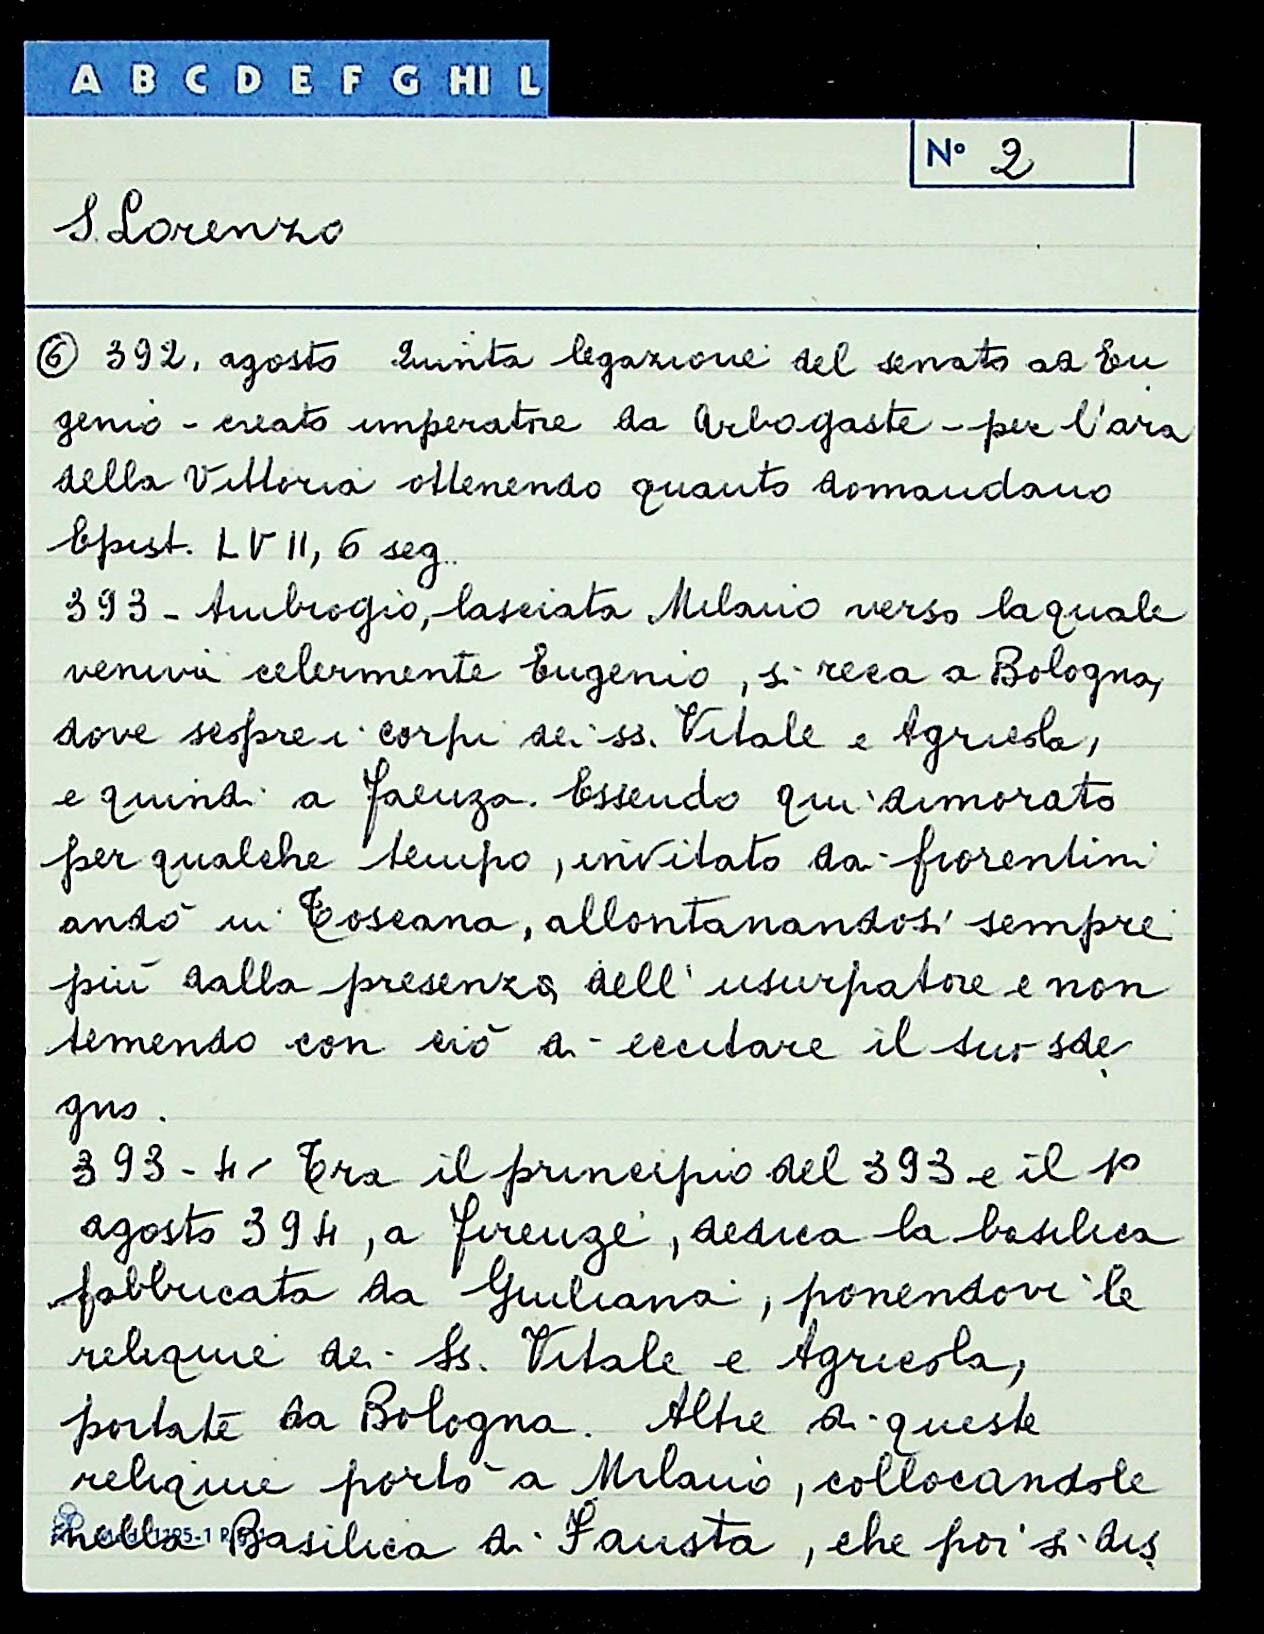 A B C D E F G HI L
N° 2
S. Lorenzo
⑥ 392, agosto Quinta legazione del senato ad Eu
genio - creato imperatore da Arbogaste - per l'ara
della Vittoria ottenendo quanto domandano
Epist. LVII, 6 seg.
393 - Ambrogio, lasciata Milano verso la quale
veniva celermente Eugenio, si reca a Bologna,
dove scopre i corpi dei ss. Vitale e Agricola,
e quindi a Faenza. Essendo qui dimorato
per qualche tempo, invitato da fiorentini
andò in Toscana, allontanandosi sempre
più dalla presenza dell'usurpatore e non
temendo con ciò di eccitare il suo sde
gno.
393-4 Tra il principio del 393 e il 1°
agosto 394, a Firenze, dedica la basilica
fabbricata da Giuliana, ponendovi le
reliquie dei Ss. Vitale e Agricola,
portate da Bologna. Altre di queste
reliquie portò a Milano, collocandole
nella Basilica di Fausta, che poi si dis